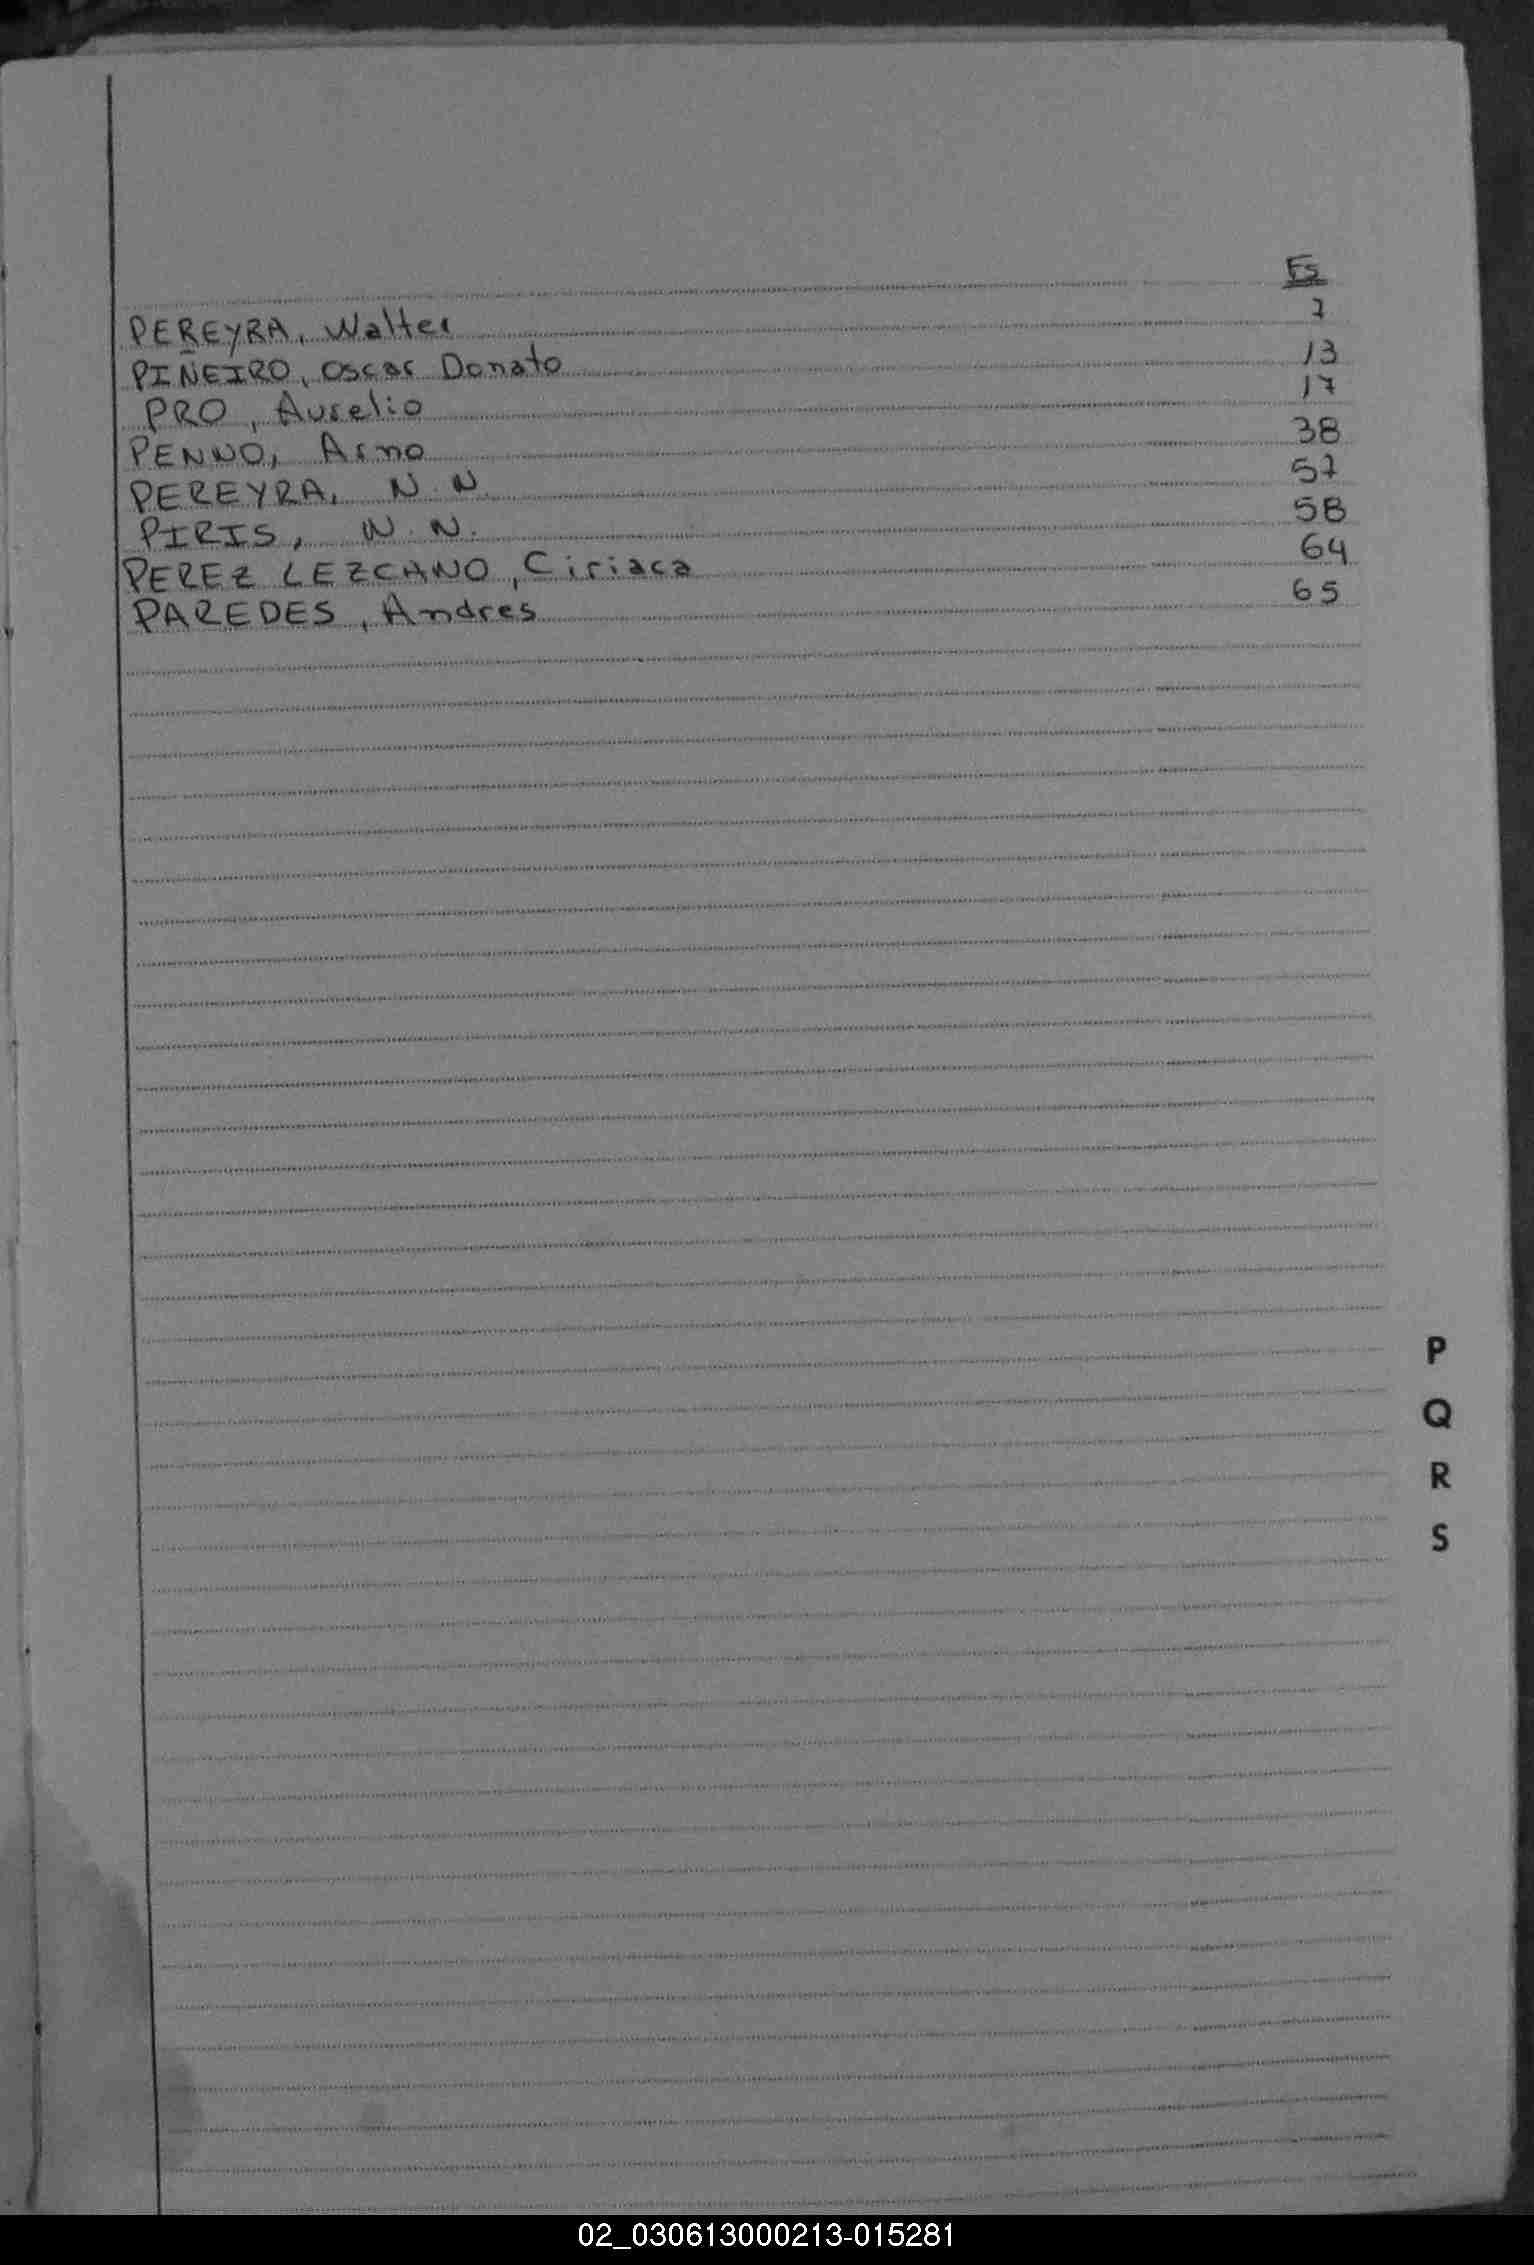 Fs
PEREYRA, Walter 7
PIÑEIRO, Oscar Donato 13
PRO, Aurelio 17
PENNO, Arno 38
PEREYRA, N.N. 57
PIRIS, N.N. 58
PEREZ LEZCANO, Ciriaca 64
PAREDES, Andres 65
P
Q
R
S
02_030613000213-015281